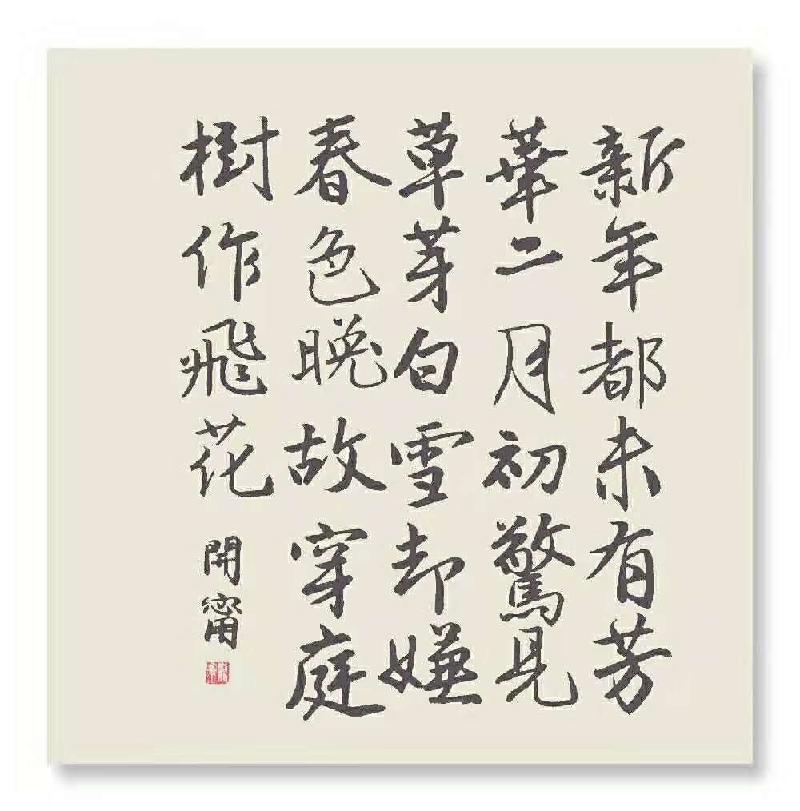 新年都未有芳
華二月初驚見
草芽白雪却嫌
春色晚故穿庭
樹作飛花
開甯